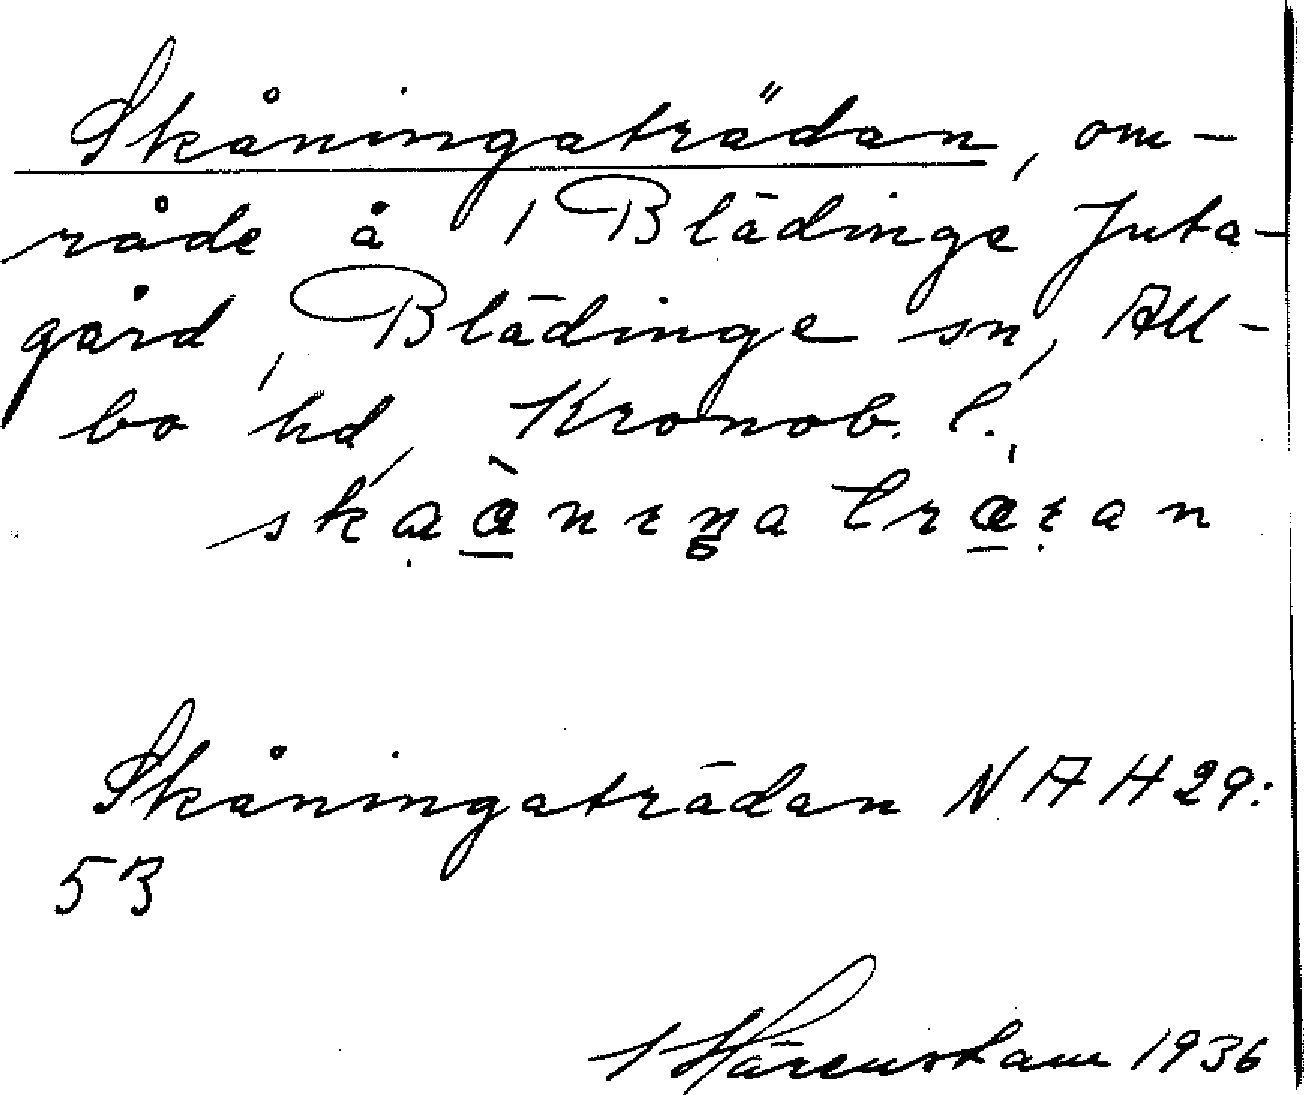 Skåningaträdan, om-
råde å 1 Blädinge Juta-
gård, Blädinge sn, All-
bo hd, Kronob. l.
Skåningaträdan NAH29:
53
Härenstam 1936